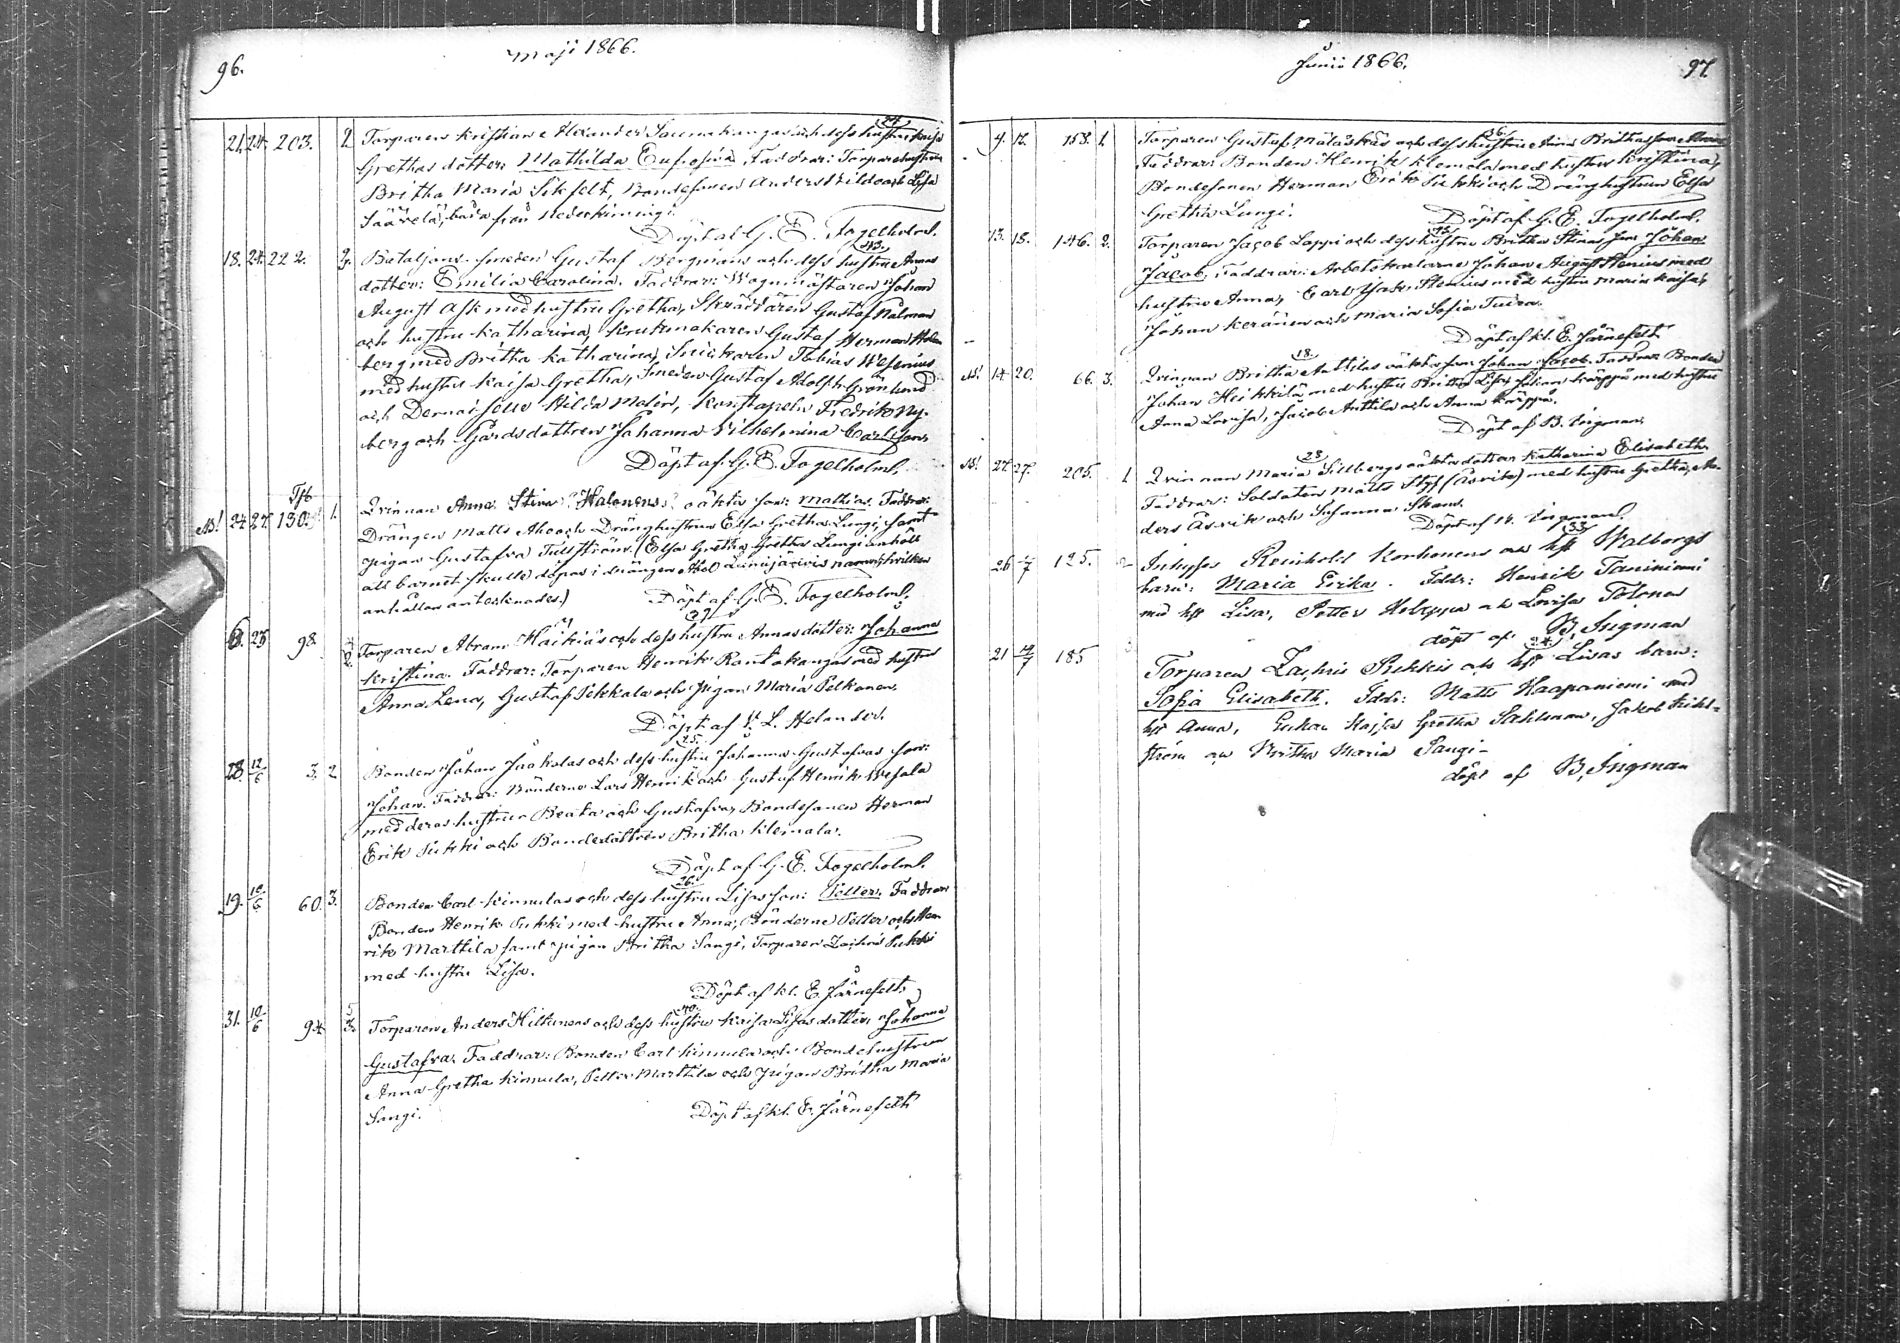 96.
Maji 1866.
21. 24. 203. 2. Torparen Kristian Alexander Saarnikangas och dess hustru Kaisa
24.
Grethas dotter: Mathilda Eufrosina, Faddrar: Torparehustrun
Britha Maria Sikfelt, Bondesonen Anders Kilda och Lisa
Säävelä, båda från Nederkiiming.
Döpt af G. E. Fogelholm.
43.
18. 24. 222. 3. Bataljons-smeden Gustaf Bergmans och dess hustru Annas
dotter: Emilia Carolina. Faddrar: Wagnmästaren Johan
August Ask med hustru Gretha, Skräddaren Gustaf Nälman
och hustru Katharina, Krukmakaren Gustaf Herman Holm
berg med Britha Katharina, Snickaren Tobias Wesenius
med hustru Kaisa Gretha, Smeden Gustaf Adolph Grönlund
och Demoiselle Hilda Malin, Konstapeln Fredrik Ny-
berg och Gårdsdottren Johanna Vilhelmina Carlsson.
Döpt af G. E. Fogelholm.
Tp6
N! 24. 27. 130. 1. Qvinnan Anna Stina Halonens oäkta son: Mathias. Faddrar:
Drängen Matts Aho och Dränghustrun Elsa Gretha Lungi, samt
pigan Gustafva Tullström. (Elsa Gretha Gretha Lungi anhöll
att barnet skulle döpas i drängen Abel Lumijärvis namn, hvilken
anhållan antecknades.) Döpt af G. E. Fogelholm.
37.
6. 25 98. 2. Torparen Abram Haikiäs och dess hustru Annas dotter: Johanna
Kristina. Faddrar: Torparen Henrik Rantakangas med hustru
Anna Lena, Gustaf Pekkala och Pigan Maria Pelkonen.
Döpt af L. L. Helander.
25.
28. 12/6 3. 2 Bonden Johan Jaakolas och dess hustru Johanna Gustafvas son:
Johan. Faddrar: Bönderne Lars Henrik och Gustaf Henrik Wesala
med deras hustrur Beata och Gustafva, Bondesonen Herman
Erik Sukki och Bondedottren Britha Klemola.
Döpt af G. E. Fogelholm.
26.
19. 10/6 60. 3. Bonden Carl Kinnulas och dess hustru Lisas son: Petter. Faddrar:
Bonden Henrik Sukki med hustru Anna, Bönderne Petter och Hen
rik Marttila samt pigan Britha Sangi, Torparen Zachris Pukki
med hustru Lisa.
Döpt af kl. E. Järnefelt.
40.
31. 10/6 94. 5/3. Torparen Anders Hiltunens och dess hustru Kaisa Lisas dotter, Johanna
Gustafva. Faddrar: Bonden Carl Kinnula och Bondehustrun
Anna Gretha Kinnula, Petter Marttila och Pigan Britha Maria
Sangi. Döpt af kl. E. Järnefelt
Junii 1866.
97
36.
9. 12. 153. 1. Torparen Gustaf Mälaskas och dess hustru Anna Brithas son
Faddrar: Bonden Henrik Klemola med hustru Kristina,
Bondesonen Herman Erik Sukki och Dränghustrun Elsa
Gretha Lungi. Döpt af G. E. Fogelholm.
13. 18. 146. 2. Torparen Jacob Lappi och dess hustru Britha Stinas son Johan
Jacob, Faddrar: Arbetskarlarne Johan August Stenius med
hustru Anna, Carl Isak Stenius med hustru Maria Kaisa,
Johan Keränen och Maria Sofia
Döpt af kl. E. Järnefelt
18.
N! 14. 20. 66. 3. Qvinnan Britha Anttilas oäkta son Johan Jacob. Faddrar: Bonden
Johan Heikkilä med hustru Britha Lisa, Johan Kärppä med hustru
Anna Lovisa, Jacob Anttila och Anna Kärppä.
Döpt af B. Ingman.
28.
N! 27. 27. 205. 1 Qvinnan Maria Sillbergs oäkta dotter Katharina Elisabeth.
Faddrar: Soldaten Matts Styf (Asvik) med hustru Gretha, An-
ders Asvik och Susanna Strand.
Döpt af B. Ingman.
33
26 1/7 125. 2 Inhyses Reinhold Korhonens o hst Walborgs
barn: Maria Erika. Fddr: Henrik Tanniniemi
med hst Lisa, Petter Holappa o Lovisa Tolonen
döpt af B. Ingman
24.
21 14/7 185 Torparen Zachris Pukkis o hst Lisas barn:
Sofia Elisabeth. Fddr: Matts Haapaniemi med
hst Anna, Enkan Kajsa Gretha Sahlman, Jakob
ström o Britha Maria Sangi-
döpt af B, Ingman